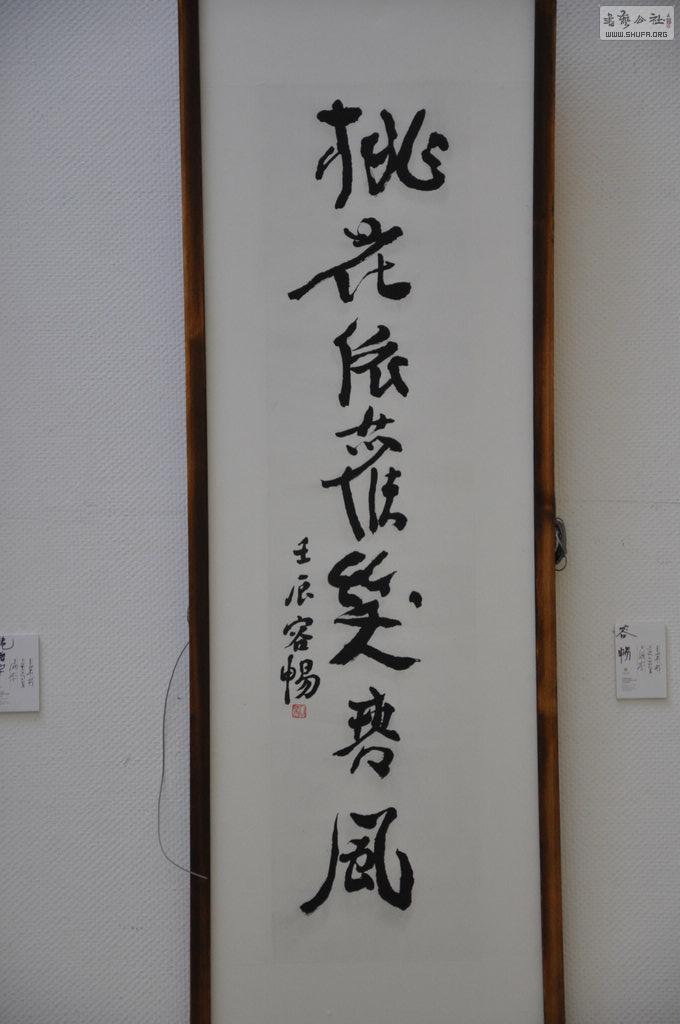 桃花依舊笑春風
壬辰容暢
書藝公社
WWW.SHUFA.ORG
容暢